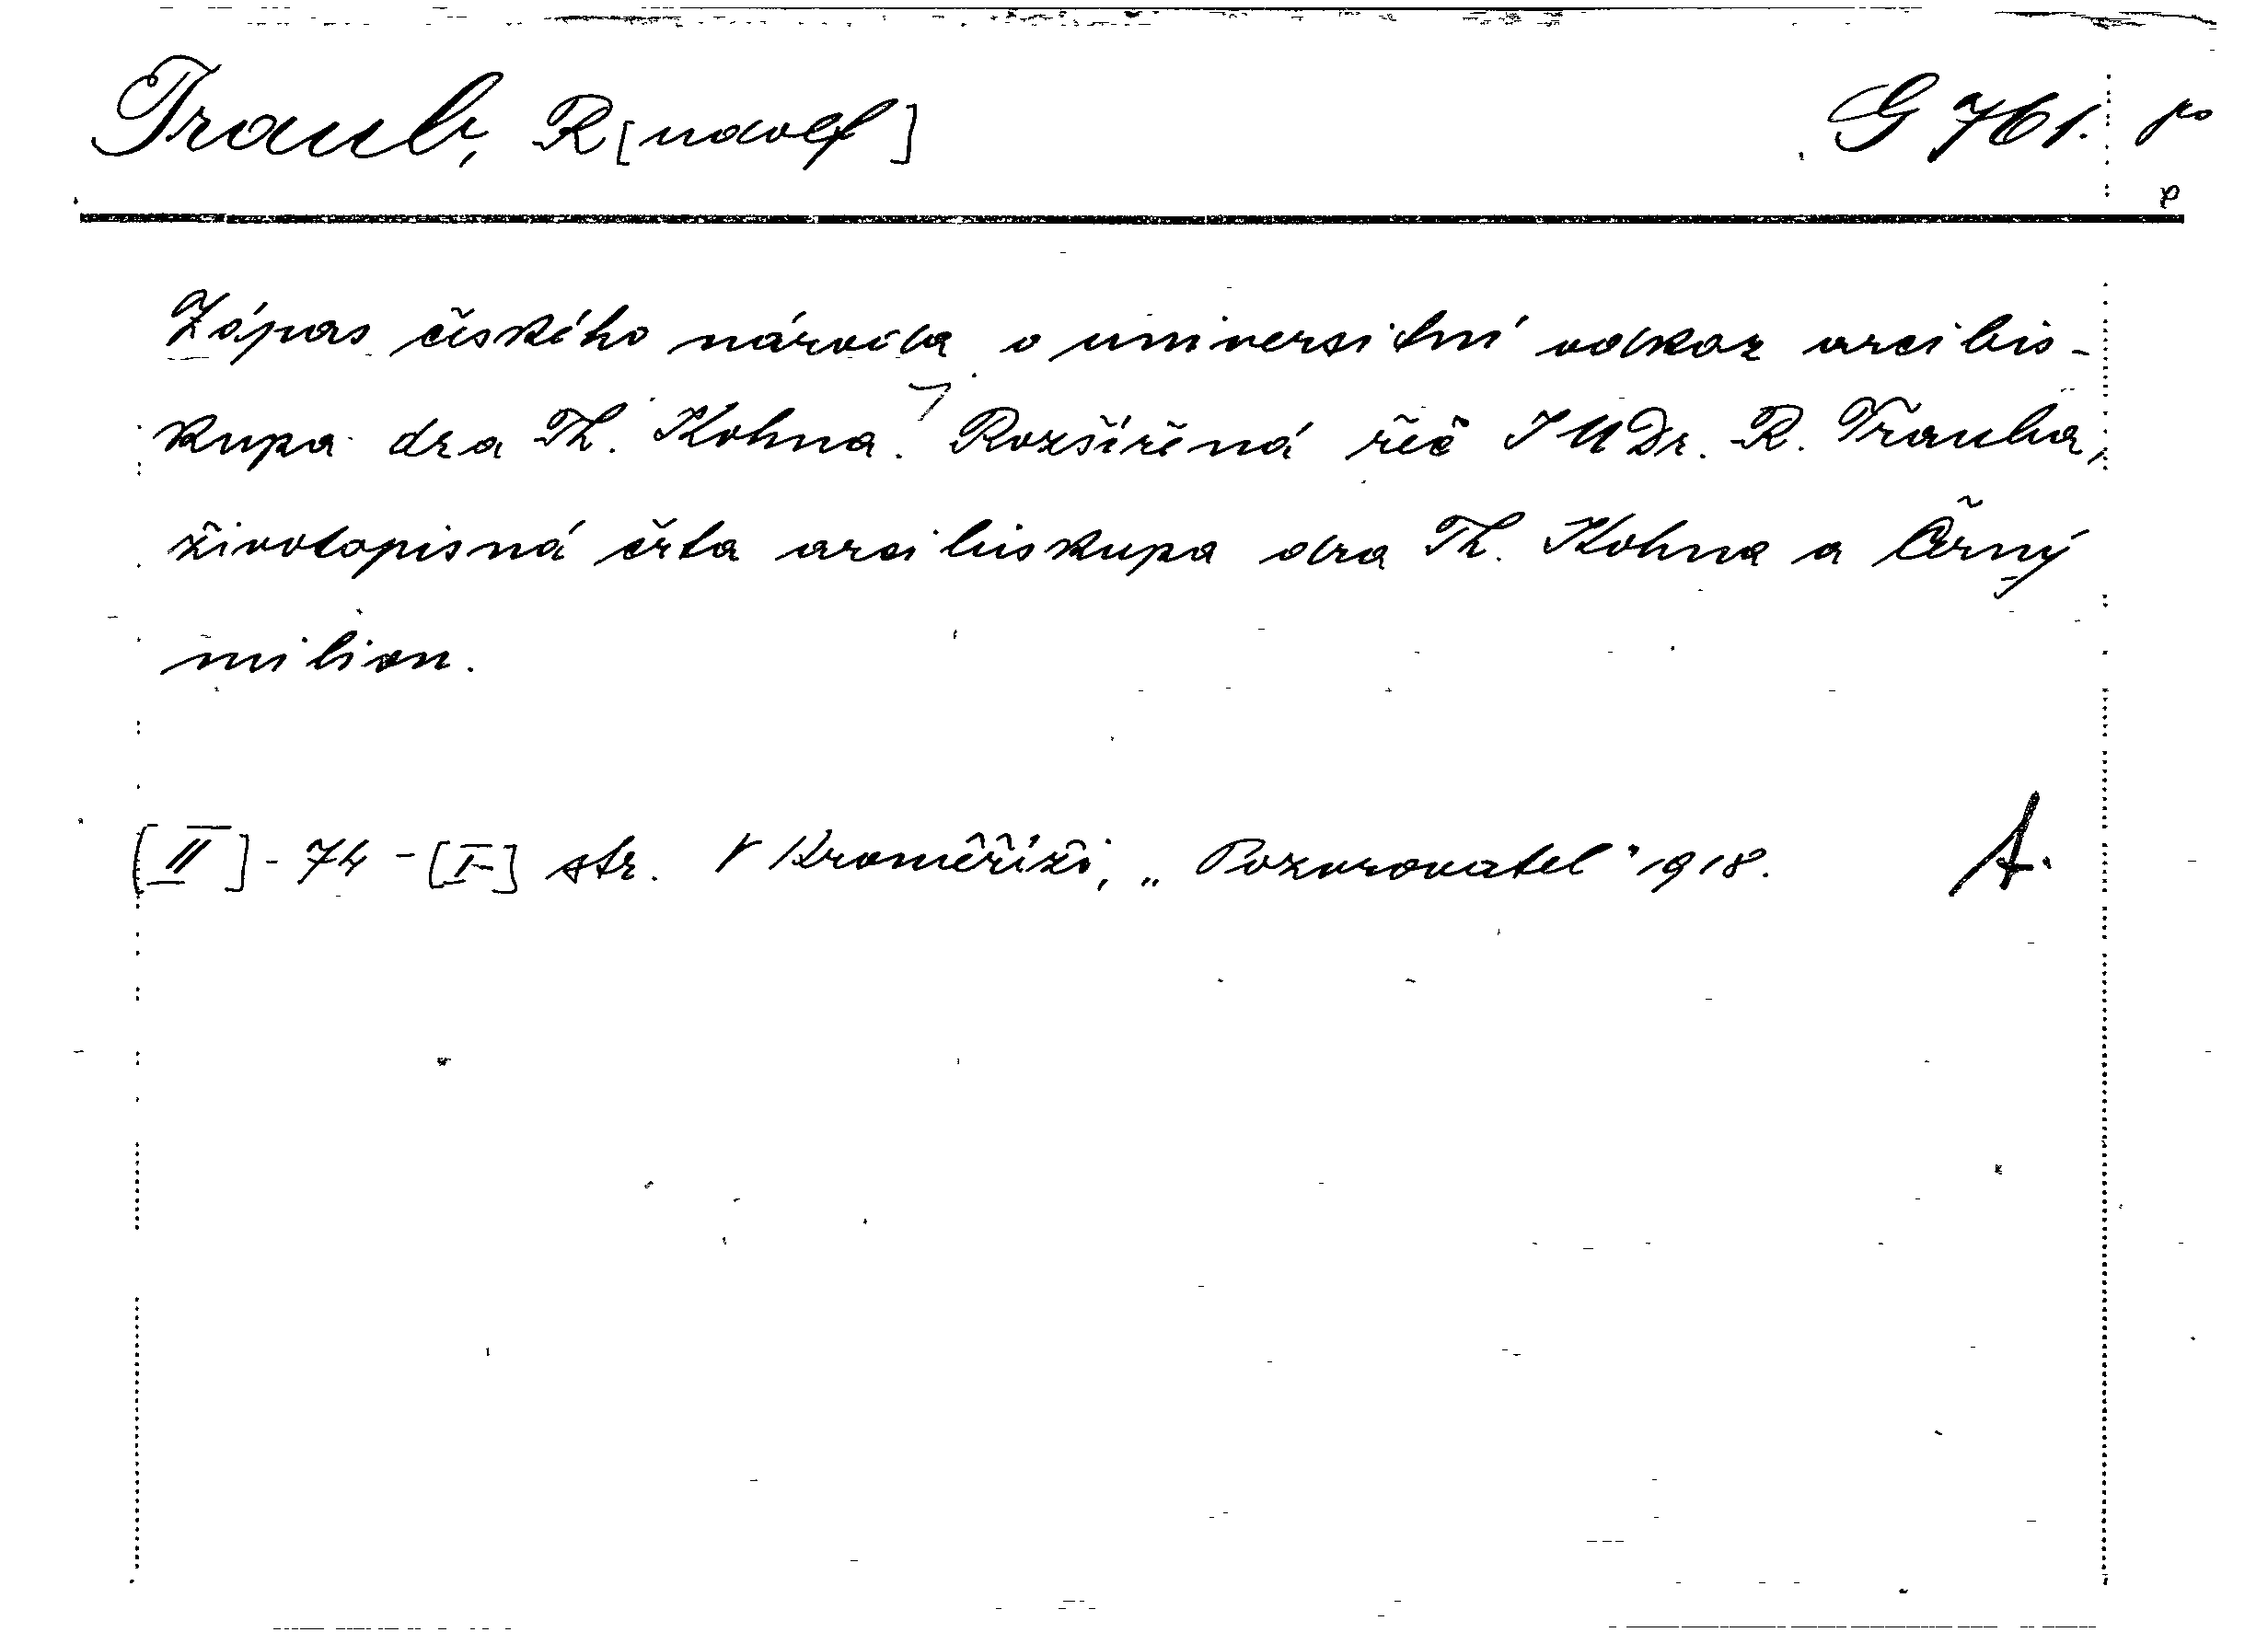 Traub, R[udolf] G 761. po
p
Zápas českého národa o universitní odkaz arcibis-
kupa dra Th. Kohna. Rozšířená řeč JUDr. R. Trauba,
životopisná črta arcibiskupa dra Th. Kohna a Černý
milion.
[II] - 74 - [I] str. V Kroměříži, „Pozorovatel" 1918. A.